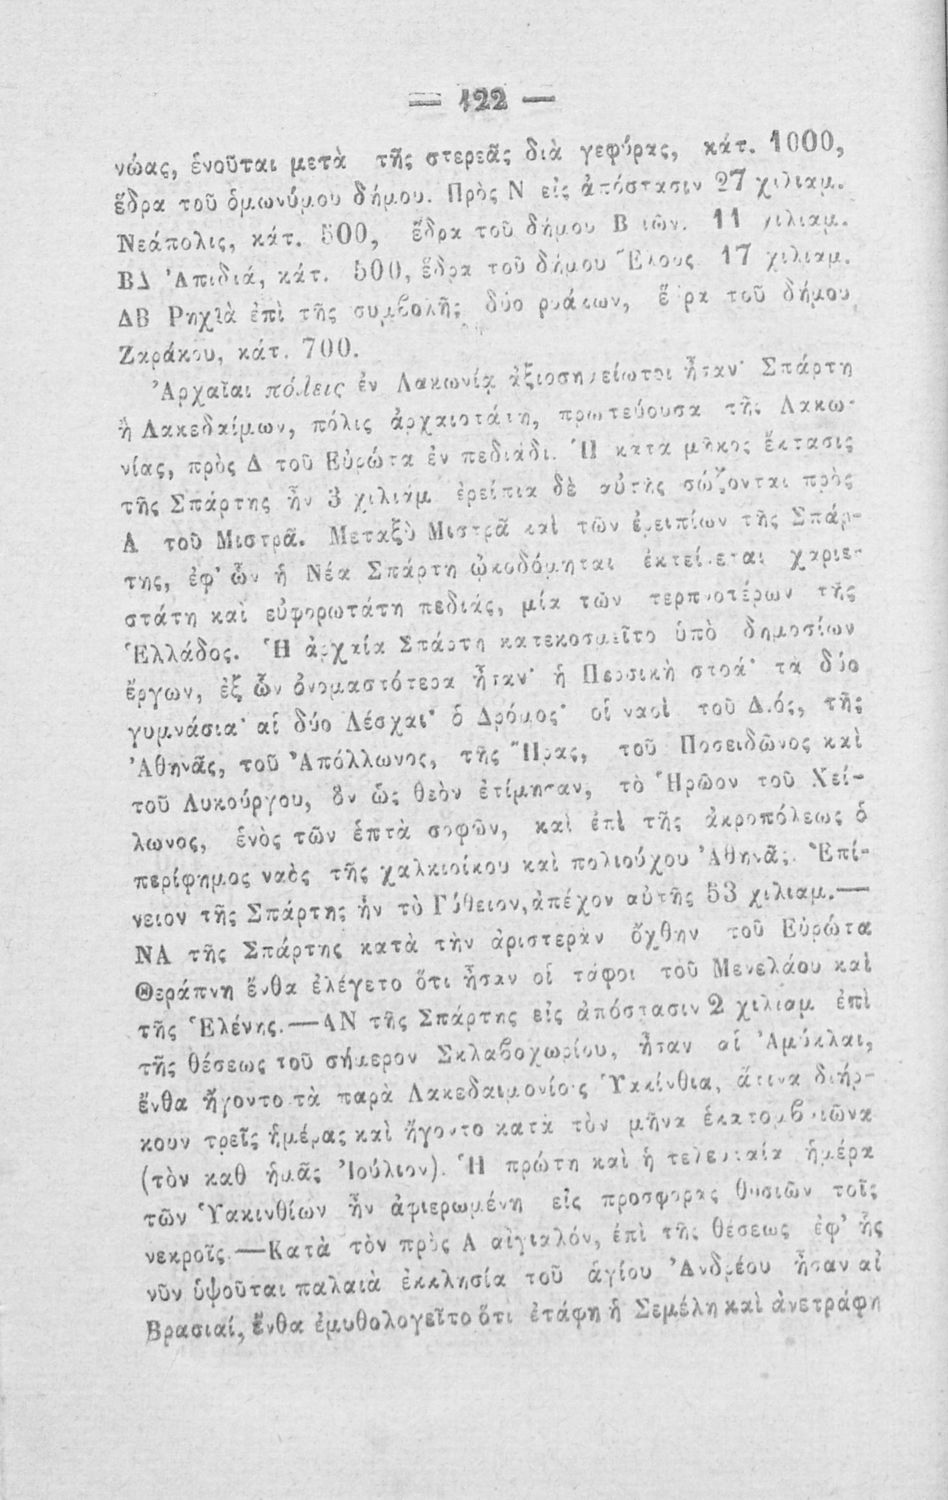 — 122 —
νώας, ἑνοῦται μετὰ τῆς στερεᾶς διὰ γεφύρας, κάτ. 1000,
ἕδρα τοῦ ὁμωνύμου δήμου. Πρὸς Ν εἰς ἀπόστασιν 27 χιλιαμ.
Νεάπολις, κάτ. 500, ἕδρα τοῦ δήμου Β ιῶν. 11 χιλιαμ.
ΒΔ Ἀπιδιά, κάτ. 500, ἕδρα τοῦ δήμου Ἕλους 17 χιλιαμ.
ΔΒ Ρηχιὰ ἐπὶ τῆς συμβολῆς δύο ρυάκων, ἕδρα τοῦ δήμου
Ζαράκου, κάτ. 700.
Ἀρχαῖαι πόλεις ἐν Λακωνίᾳ ἀξιοσημείωτοι ἦταν· Σπάρτη
ἢ Λακεδαίμων, πόλις ἀρχαιοτάτη, πρωτεύουσα τῆς Λακω-
νίας, πρὸς Δ τοῦ Εὐρώτα ἐν πεδιάδι. Ἡ κατὰ μῆκος ἔκτασις
τῆς Σπάρτης ἦν 3 χιλιάμ. ἐρείπια δὲ αὐτῆς σώζονται πρὸς
Α τοῦ Μιστρᾶ. Μεταξὺ Μιστρᾶ καὶ τῶν ἐρειπίων τῆς Σπάρ-
της, ἐφ᾽ ὧν ἡ Νέα Σπάρτη ᾠκοδόμηται ἐκτείνεται χαριε-
στάτη καὶ εὐφορωτάτη πεδιάς, μία τῶν τερπνοτέρων τῆς
Ἑλλάδος. Ἡ ἀρχαία Σπάρτη κατεκοσμεῖτο ὑπὸ δημοσίων
ἔργων, ἐξ ὧν ὀνομαστότερα ἦταν· ἡ Περσικὴ στοά· τὰ δύο
γυμνάσια· αἱ δύο Λέσχαι· ὁ Δρόμος· οἱ ναοὶ τοῦ Διός, τῆς
Ἀθηνᾶς, τοῦ Ἀπόλλωνος, τῆς Ἥρας, τοῦ Ποσειδῶνος καὶ
τοῦ Λυκούργου, ὃν ὡς θεὸν ἐτίμησαν, τὸ Ἡρῶον τοῦ Χεί-
λωνος, ἑνὸς τῶν ἑπτὰ σοφῶν, καὶ ἐπὶ τῆς ἀκροπόλεως ὁ
περίφημος ναὸς τῆς χαλκιοίκου καὶ πολιούχου Ἀθηνᾶς. Ἐπί-
νειον τῆς Σπάρτης ἦν τὸ Γύθειον, ἀπέχον αὐτῆς 53 χιλιαμ.—
ΝΑ τῆς Σπάρτης κατὰ τὴν ἀριστερὰν ὄχθην τοῦ Εὐρώτα
Θεράπνη ἔνθα ἐλέγετο ὅτι ἦσαν οἱ τάφοι τοῦ Μενελάου καὶ
τῆς Ἑλένης.—ΑΝ τῆς Σπάρτης εἰς ἀπόστασιν 2 χιλιαμ ἐπὶ
τῆς θέσεως τοῦ σήμερον Σκλαβοχωρίου, ἦταν αἱ Ἀμύκλαι,
ἔνθα ἤγοντο τὰ παρὰ Λακεδαιμονίοις Ὑακίνθια, ἅτινα διήρ-
κουν τρεῖς ἡμέρας καὶ ἤγοντο κατὰ τὸν μῆνα ἑκατομβαιῶνα
(τὸν καθ ἡμᾶς Ἰούλιον). Ἡ πρώτη καὶ ἡ τελευταία ἡμέρα
τῶν Ὑακινθίων ἦν ἀφιερωμένη εἰς προσφορὰς θυσιῶν τοῖς
νεκροῖς.—Κατὰ τὸν πρὸς Α αἰγιαλόν, ἐπὶ τῆς θέσεως ἐφ᾽ ἧς
νῦν ὑψοῦται παλαιὰ ἐκκλησία τοῦ ἁγίου Ἀνδρέου ἦσαν αἱ
Βρασιαί, ἔνθα ἐμυθολογεῖτο ὅτι ἐτάφη ἡ Σεμέλη καὶ ἀνετράφη